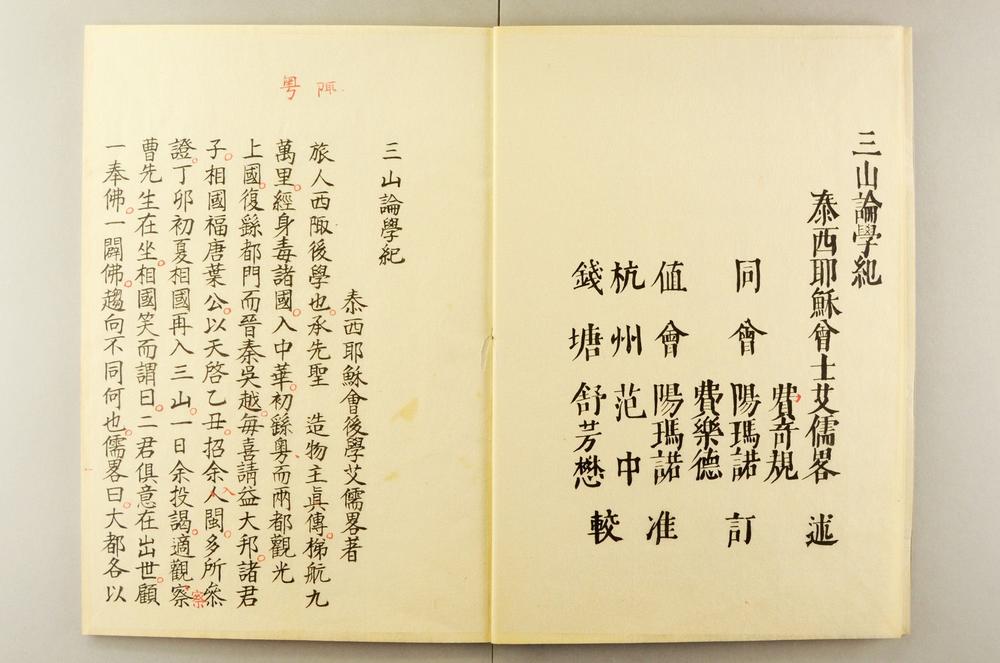 三山論學紀
泰西耶穌會士艾儒畧 述
費奇規
同會 陽瑪諾 訂
費樂德
值會 陽瑪諾 准
杭州 范中
錢塘 舒芳懋 較
陬
粤
三山論學紀
泰西耶穌會後學艾儒畧著
旅人西陬後學也承先聖 造物主眞傳梯航九
萬里經身毒諸國入中華初繇粵而兩都觀光
上國復繇都門而晉秦吳越每喜請益大邦諸君
子相國福唐葉公以天啓乙丑招余人閩多所叅
入
證丁卯初夏相國再入三山一日余投謁適觀察
察
曹先生在坐相國笑而謂曰二君俱意在出世顧
一奉佛一闢佛趨向不同何也儒畧曰大都各以